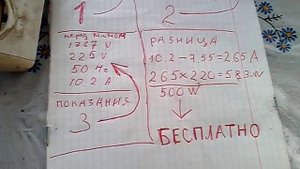 1
перед МИКОМ
1767 W
225 V
50 Hz
10.2 A
ПОКАЗАНИЯ
3
2
РАЗНИЦА
10.2-7.55=2.65 A
2.65×220=583.W
500W
БЕСПЛАТНО